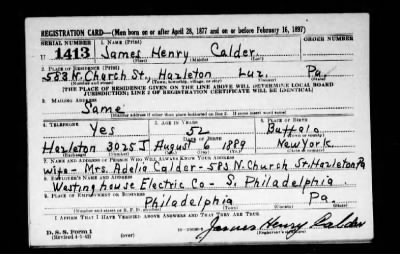 REGISTRATION CARD—(Men born on or after April 28, 1877 and on or before February 16, 1897)
SERIAL NUMBER 1. NAME (Print) ORDER NUMBER
U 1413 James Henry Calder
(First) (Middle) (Last)
2. PLACE OF RESIDENCE (Print)
583 N. Church St., Hazleton Luz. Pa.
(Number and street) (Town, township, village, or city) (County) (State)
[THE PLACE OF RESIDENCE GIVEN ON THE LINE ABOVE WILL DETERMINE LOCAL BOARD
JURISDICTION; LINE 2 OF REGISTRATION CERTIFICATE WILL BE IDENTICAL]
3. MAILING ADDRESS
Same
[Mailing address if other than place indicated on line 2. If same insert word same]
4. TELEPHONE 5. AGE IN YEARS 6. PLACE OF BIRTH
Yes 52 Buffalo
DATE OF BIRTH (Town or county)
Hazleton 3025J August 6 1889 New York
(Exchange) (Number) (Mo.) (Day) (Yr.) (State or country)
7. NAME AND ADDRESS OF PERSON WHO WILL ALWAYS KNOW YOUR ADDRESS
Wife - Mrs. Adelia Calder - 583 N. Church St. Hazleton Pa
8. EMPLOYER'S NAME AND ADDRESS
Westinghouse Electric Co - S. Philadelphia
9. PLACE OF EMPLOYMENT OR BUSINESS
Philadelphia Pa.
(Number and street or R. F. D. number) (Town) (County) (State)
I AFFIRM THAT I HAVE VERIFIED ABOVE ANSWERS AND THAT THEY ARE TRUE.
D. S. S. Form 1
(Revised 4-1-42) James Henry Calder
(Registrant's signature)